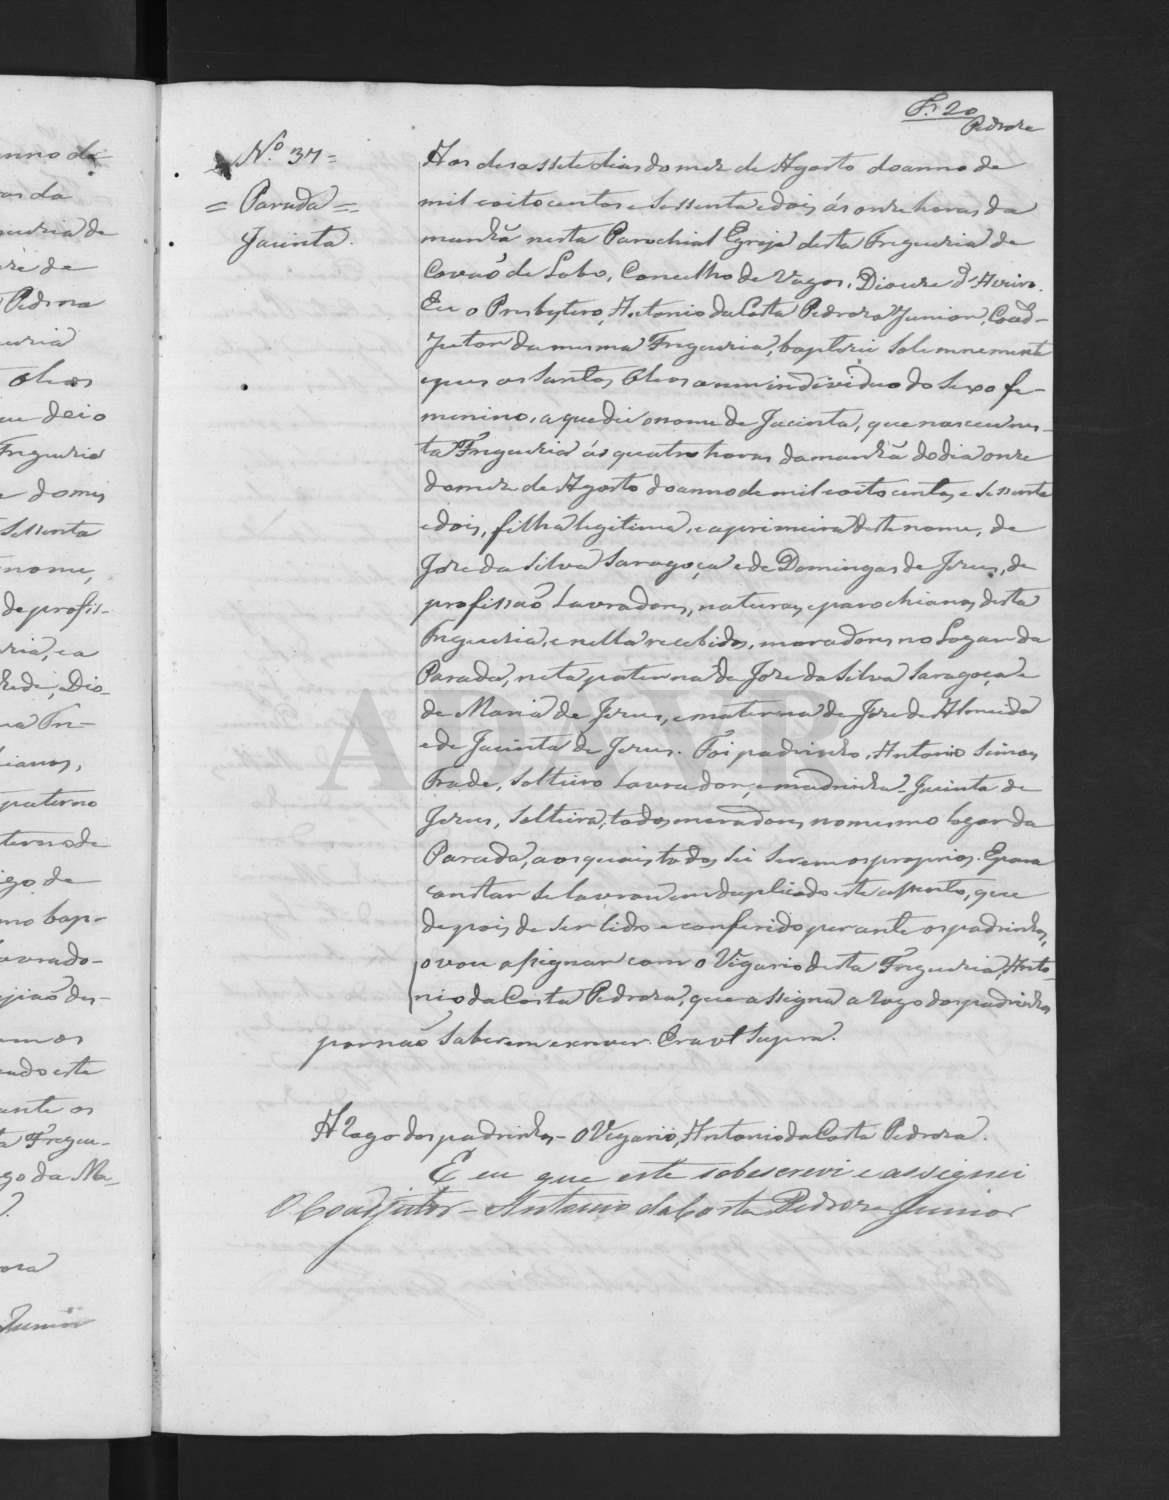 Fl. 20
Pedroza
N.º 37 =
= Parada =
Jacinta.
Aos desassete dias do mez de Agosto do anno de
mil e oitocentos e sessenta e dois, ás onze horas da
manhã nesta Parochial Egreja desta Freguezia de
Covaõ de Lobo, Concelho de Vagos, Diocese d'Aveiro.
Eu o Presbytero, Antonio da Costa Pedroza Junior, Coad-
jutor da mesma Freguezia, baptizei solemnemente
e puz os Santos Oleos a um individuo do sexo fe-
menino, a que dei o nome de Jacinta, que nasceu nes-
ta Freguezia ás quatro horas da manhã do dia onze
do mez de Agosto do anno de mil e oito centos e sessenta
e dois, filha legitima, e a primeira deste nome, de
Joze da Silva Saragoça e de Domingas de Jezus, de
profissaõ Lavradores, naturaes e parochianos desta
Freguezia, e nella recebidos, moradores no Logar da
Parada, neta paterna de Joze da Silva Saragoça e
de Maria de Jezus, e materna de Joze de Almeida
e de Jacinta de Jezus. Foi padrinho, Antonio Simoes
Frade, solteiro Lavrador, e madrinha Jacinta de
Jezus, solteira, todos moradores no mesmo logar da
Parada, aos quais todos sei serem os proprios. E para
constar se lavrou em duplicado este assento, que
depois de ser lido e conferido perante os padrinhos,
o vou assignar com o Vigario desta Freguezia, Anto-
nio da Costa Pedroza, que assigna a rogo dos padrinhos
por naõ saberem escrever. Era ut supra.
A rogo dos padrinhos - O Vigario, Antonio da Costa Pedroza.
E eu que este sobescrevi e assignei
O Coadjutor - Antonio da Costa Pedroza Junior
ADAVR
anno de
as da
guezia de
ze de
Pedroza
uezia
Oleos
Freguezia
sessenta
nome,
de profis-
Dio-
na Fre-
ianos,
paterno
terno de
de
mo bap-
avrado-
ado este
ante os
ta Fregue-
go da Ma-
oza
Junior